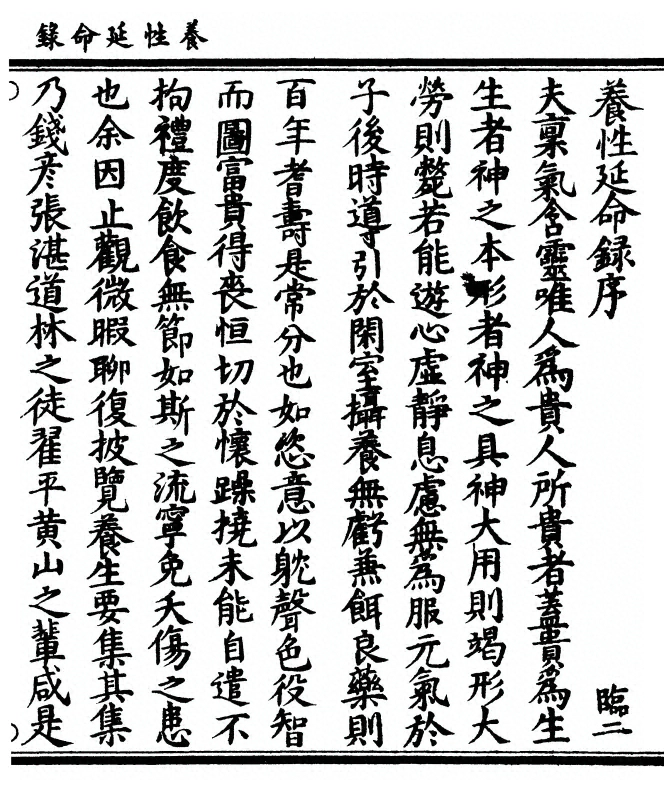 養性延命錄
養性延命錄序 臨二
夫稟氣含靈唯人爲貴人所貴者蓋貴爲生
生者神之本形者神之具神大用則竭形大
勞則斃若能遊心虛靜息慮無爲服元氣於
子後時導引於閑室攝養無虧兼餌良藥則
百年耆壽是常分也如恣意以躭聲色役智
而圖富貴得喪恒切於懷躁撓未能自遣不
拘禮度飲食無節如斯之流寧免夭傷之患
也余因止觀微暇聊復披覽養生要集其集
乃錢彦張湛道林之徒翟平黄山之輩咸是